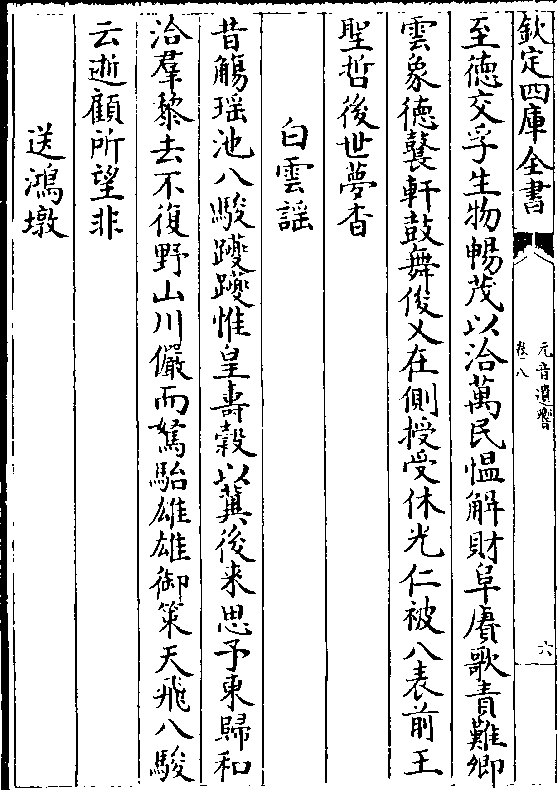 欽定四庫全書
元音遺響
卷八
六
至徳交孚生物暢茂以洽萬民愠解財阜賡歌責難卿
雲象徳鼚軒鼓舞俊乂在側授受休光仁被八表前王
聖哲後世夢杳
白雲謡
昔觴瑶池八駿蹻蹻惟皇壽榖以冀後来思予東歸和
洽羣黎去不復野山川儼而駑駘雄雄御策天飛八駿
云逝顧所望非
送鴻墩